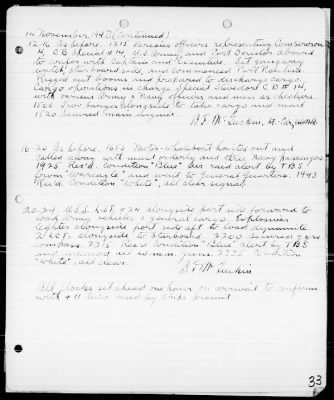 14 November, 1943 (Continued)
12-16 As before. 1315 Various officers representing Comservron
4, C.B. Special #14, U.S. Army, and Port Director aboard
to confer with Captain and Executive. Set gangway
watch, starboard side, and commenced Port Routine.
Rigged out booms and prepared to discharge cargo.
Cargo operations in charge Special Stevedors C.B. #14,
with various Army & Navy officers and men as checkers.
1500 Two barges alongside to take cargo and mail
1520 Secured main engine.
16-20 As before. 1650 Motor whaleboat hoisted out and
called away with mail orderly and three Navy passengers
1925 Rec'd. Condition "Blue" air raid alert by TBS
from and went to General Quarters. 1943
Rec'd. Condition "White", all clear signal.
20-24 U.S.S. LST #24 alongside port side forward to
load Army vehicles & general cargo. Explosives
lighter alongside port side aft to load dynamite
2 LCT's alongside to starboard. 2200 Secured gyro
compass. 2315 Rec'd Condition "Blue" alert by TBS
and manned guns. 2335 Condition
"White", all clear.
All clocks set ahead one hour on arrival to conform
with +11 time used by ships present.
33